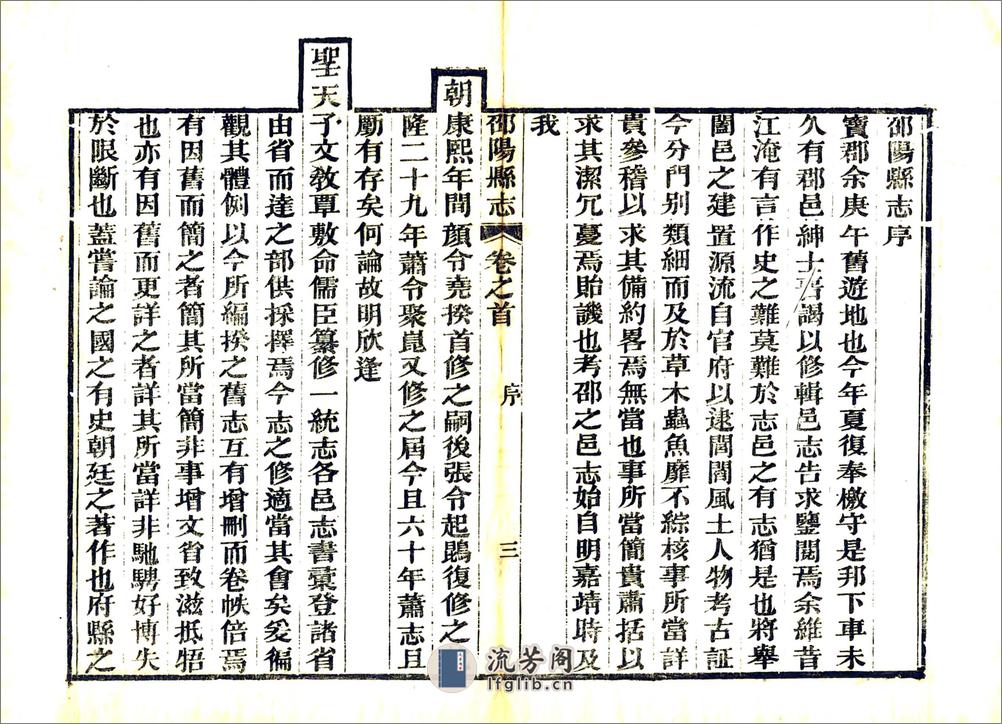 邵陽縣志序
寶郡余庚午舊遊地也今年夏復奉檄守是邦下車未
久有郡邑紳士晉謁以修輯邑志告求鑒閱焉余維昔
江淹有言作史之難莫難於志邑之有志猶是也將舉
闔邑之建置源流自官府以逮閭閻風土人物考古証
今分門別類細而及於草木蟲魚靡不綜核事所當詳
貴參稽以求其備約畧焉無當也事所當簡貴肅括以
求其潔冗蔓焉貽譏也考邵之邑志始自明嘉靖時及
我
邵陽縣志 卷之首 序 三
朝康熙年間顏令堯揆首修之嗣後張令起鵾復修之乾
隆二十九年蕭令聚崑又修之屆今且六十年蕭志且
勵有存矣何論故明欣逢
聖天子文教覃敷命儒臣纂修一統志各邑志書彙登諸省
由省而達之部供採擇焉今志之修適當其會矣爰徧
觀其體例以今所編揆之舊志互有增刪而卷帙倍焉
有因舊而簡之者簡其所當簡非事增文省致滋抵牾
也亦有因舊而更詳之者詳其所當詳非馳騁好博失
於限斷也蓋嘗論之國之有史朝廷之著作也府縣之
流芳阁
lfglib.cn